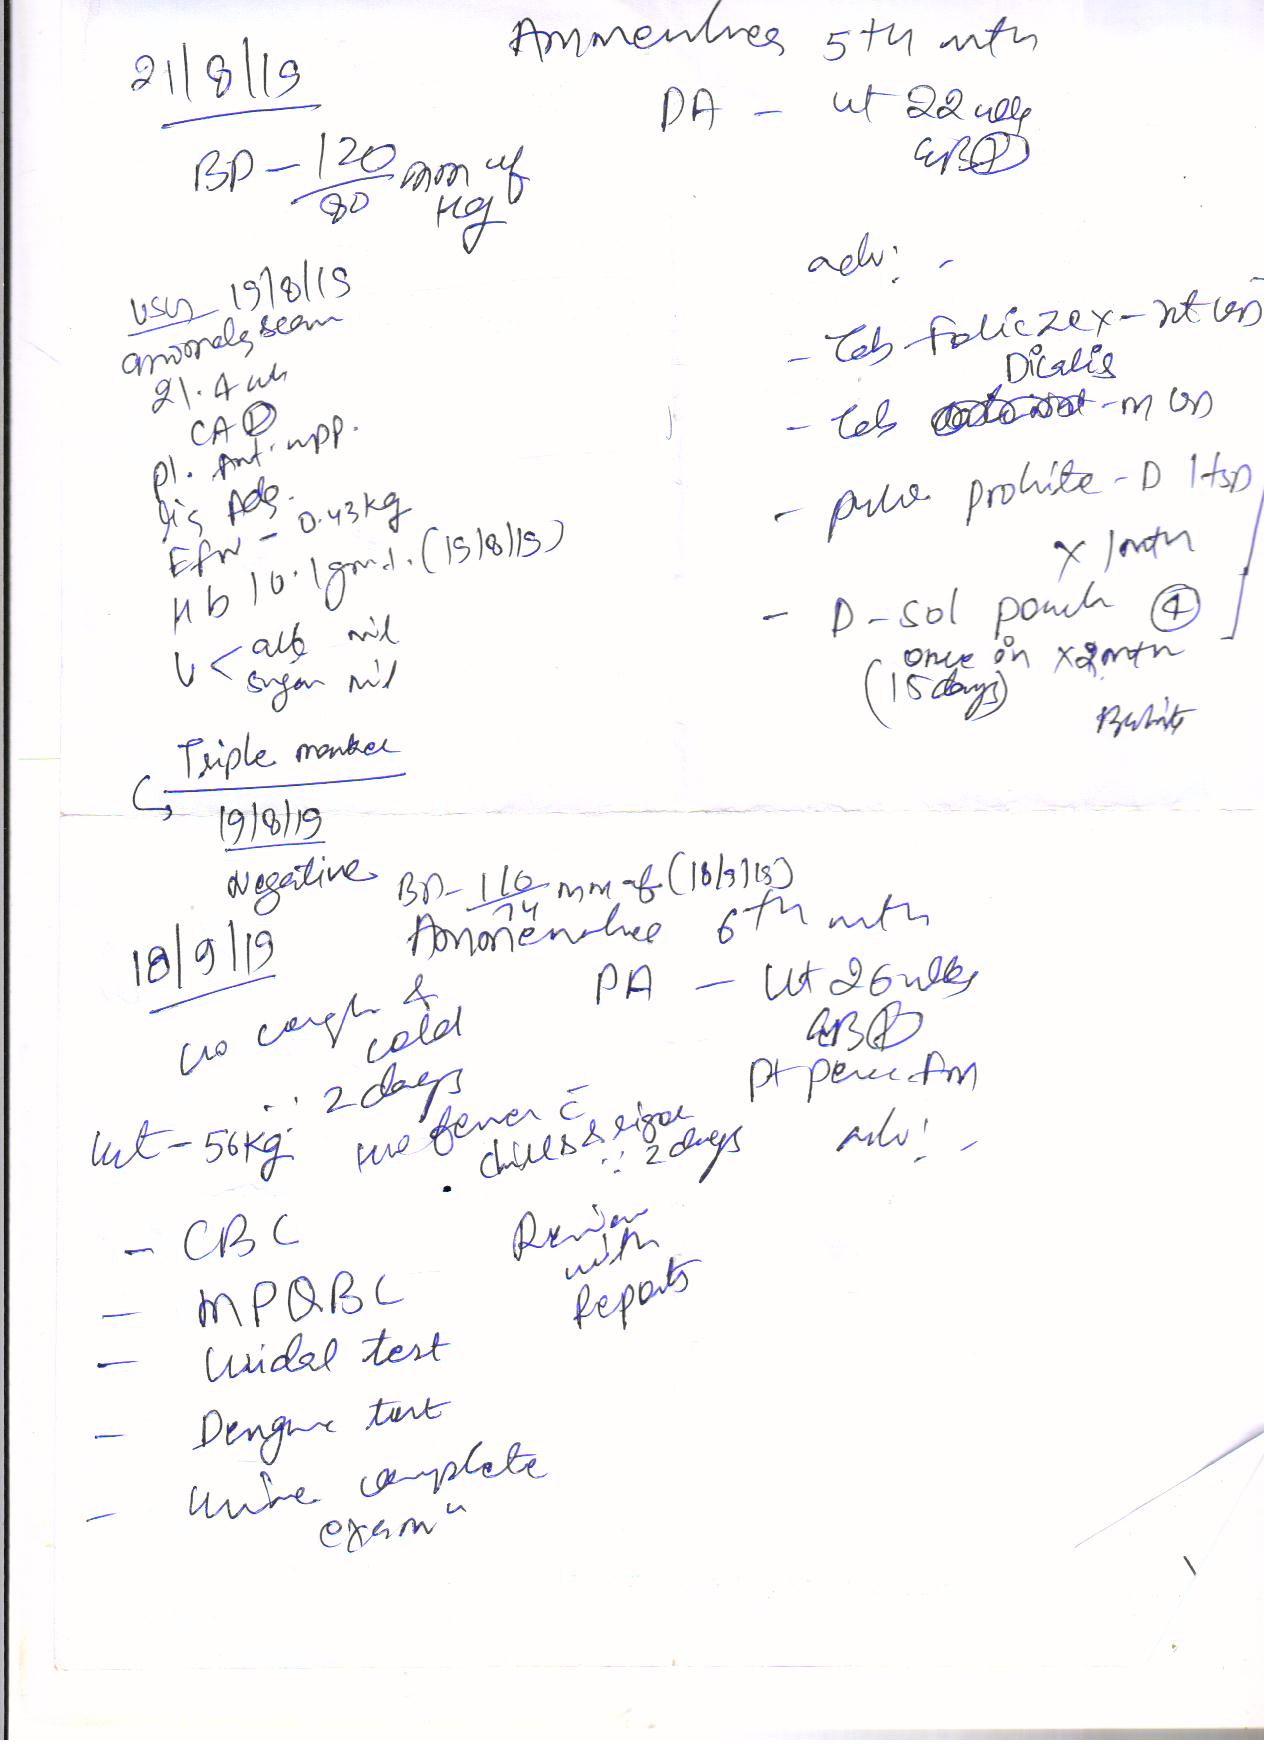 21/8/19
Ammenhrea 5th mth
PA - ut 22 wks
BP - 120/80 mm of Hg
adv: -
USG 19/8/19
anomaly scan
21.4 wk
CA
pl. Ant. upp.
liq Adq.
Efw - 0.43kg
Hb 10.1gm%. (19/8/19)
U < alb nil
sugar nil
- Tab Folic
Dicalis
- Tab
- Prohite - D 1 tsp
x 1 mth
- D-sol pouch 4
once in x 2 mth
(15 days)
Triple marker
19/8/19
Negative
BP - 110/74 mm of (18/9/19)
18/9/19
Ammenorhea 6th mth
PA - ut 26 wks
c/o cough &
cold
∵ 2 days
Wt - 56kg
fever c̄
chills & rigor
∵ 2 days
adv: -
- CBC
- MPQBC
- Widal test
- Dengue test
- Urine complete
exam"
Review
with
Reports